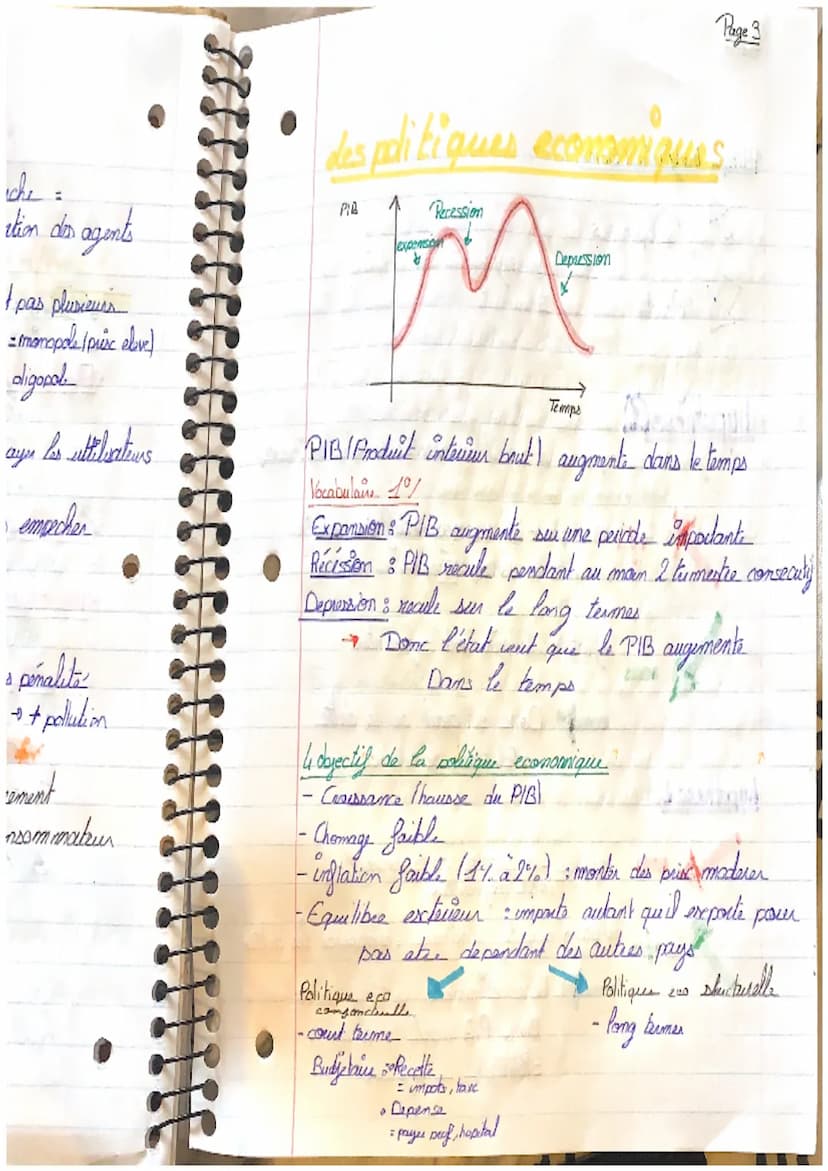 che =
ation des agents
t pas plusieurs
= monopole (prix eleve)
oligopole
ayer les utilisateurs
empecher
s pénalité
→ + pollution
ement
nsommateur
Page 3
des politiques economiques
PIB
Recession
expension
Depression
Temps
PIB (Produit intérieur brut) augmente dans le temps
Vocabulaire 1°/
Expansion : PIB augmente sur une periode importante
Récission : PIB recule pendant au moin 2 trimestre consecutif
Depression : recule sur le long termes
→ Donc l'état veut que le PIB augemente
Dans le temps
4 objectif de la politique economique
- Croissance (hausse du PIB)
- Chomage faible
- inflation faible (1% à 2%) : monter des prix moderer
- Equilibre exterieur : importe autant qu'il exporte pour
pas etre dependant des autres pays
Politique eco
conjoncturelle
- court terme
Budjetaire : Recette
= impots, taxe
Depense
= payer prof, hopital
Politique eco structurelle
- long termes